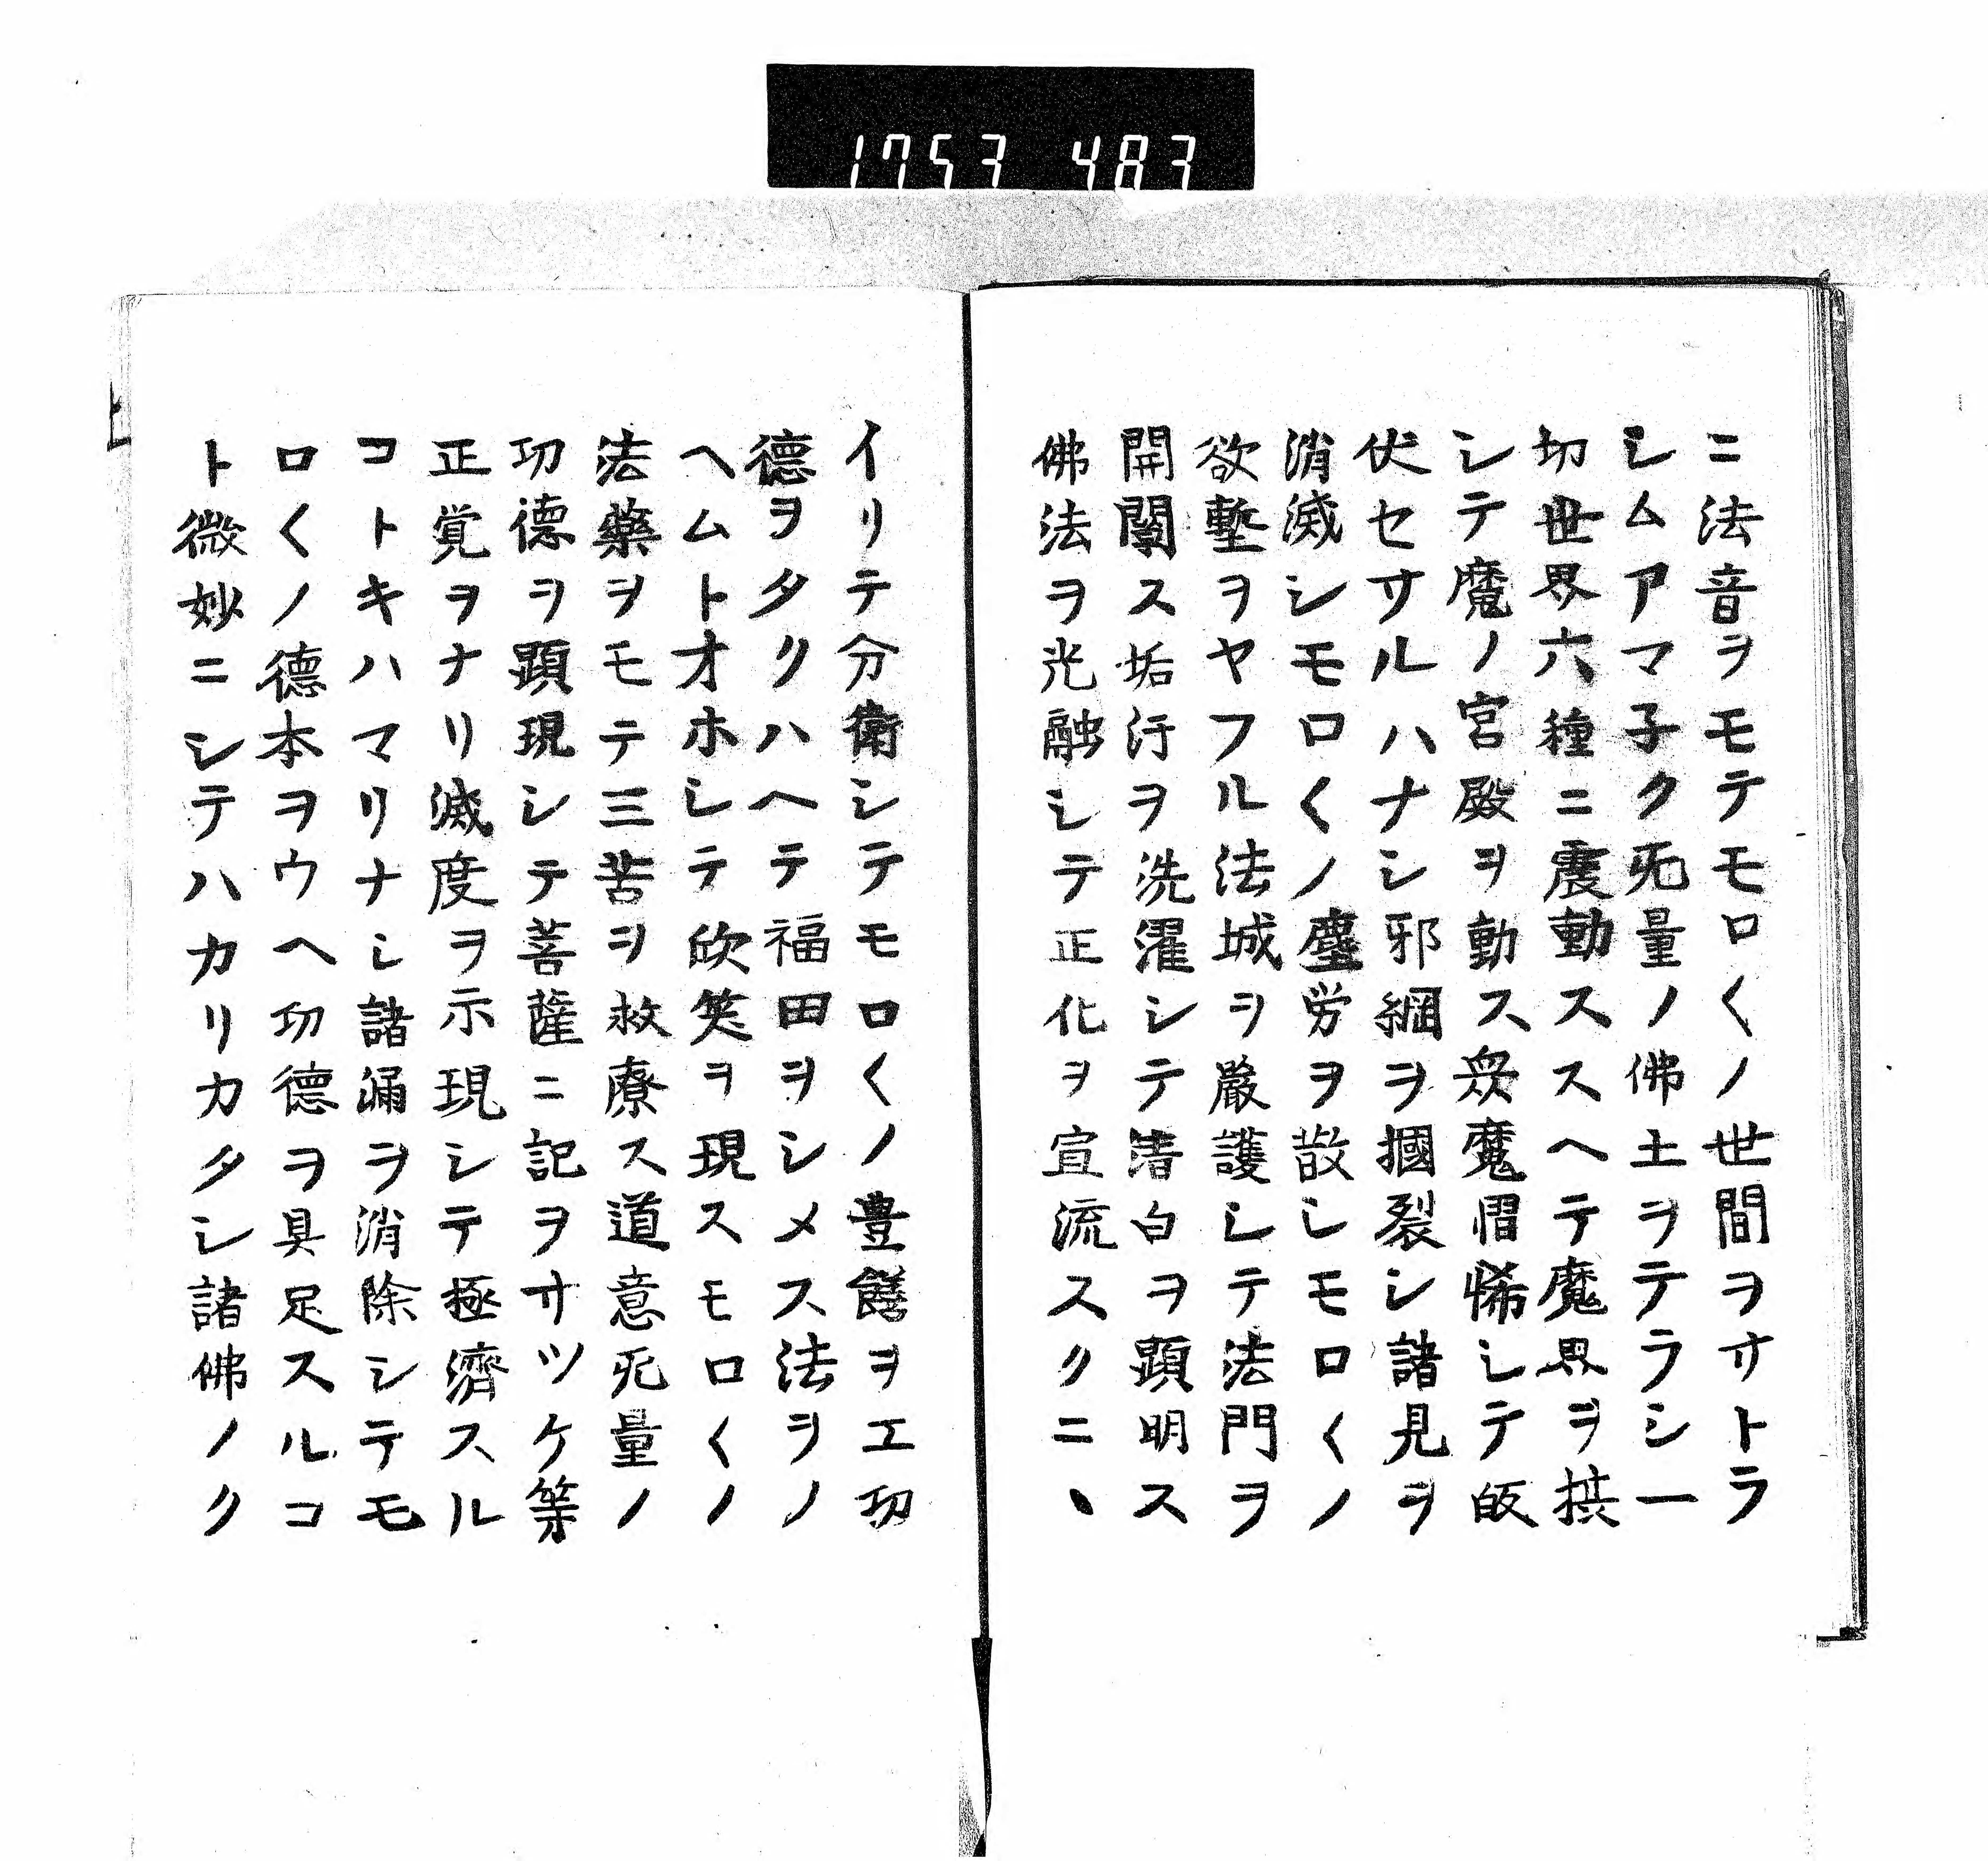 1753 483
ニ法音ヲモテモロ〱ノ世間ヲサトラ
シムアマ子ク旡量ノ佛土ヲテラシ一
切世界六種ニ震動ススヘテ魔界ヲ揔
シテ魔ノ宮殿ヲ動ス衆魔慴怖シテ皈
伏セサルハナシ邪網ヲ摑裂シ諸見ヲ
消滅シモロ〱ノ塵労ヲ散シモロ〱ノ
欲壍ヲヤフル法城ヲ厳護シテ法門ヲ
開闡ス垢汙ヲ洗濯シテ清白ヲ顕明ス
佛法ヲ光融シテ正化ヲ宣流スクニヽ
イリテ分衛シテモロ〱ノ豊饍ヲエ功
德ヲタクハヘテ福田ヲシメス法ヲノ
ヘムトオホシテ欣笑ヲ現スモロ〱ノ
法藥ヲモテ三苦ヲ救療ス道意旡量ノ
功德ヲ顕現シテ菩薩ニ記ヲサツケ等
正覚ヲナリ滅度ヲ示現シテ拯濟スル
コトキハマリナシ諸漏ヲ消除シテモ
ロ〱ノ德本ヲウヘ功德ヲ具足スルコ
ト微妙ニシテハカリカタシ諸佛ノク